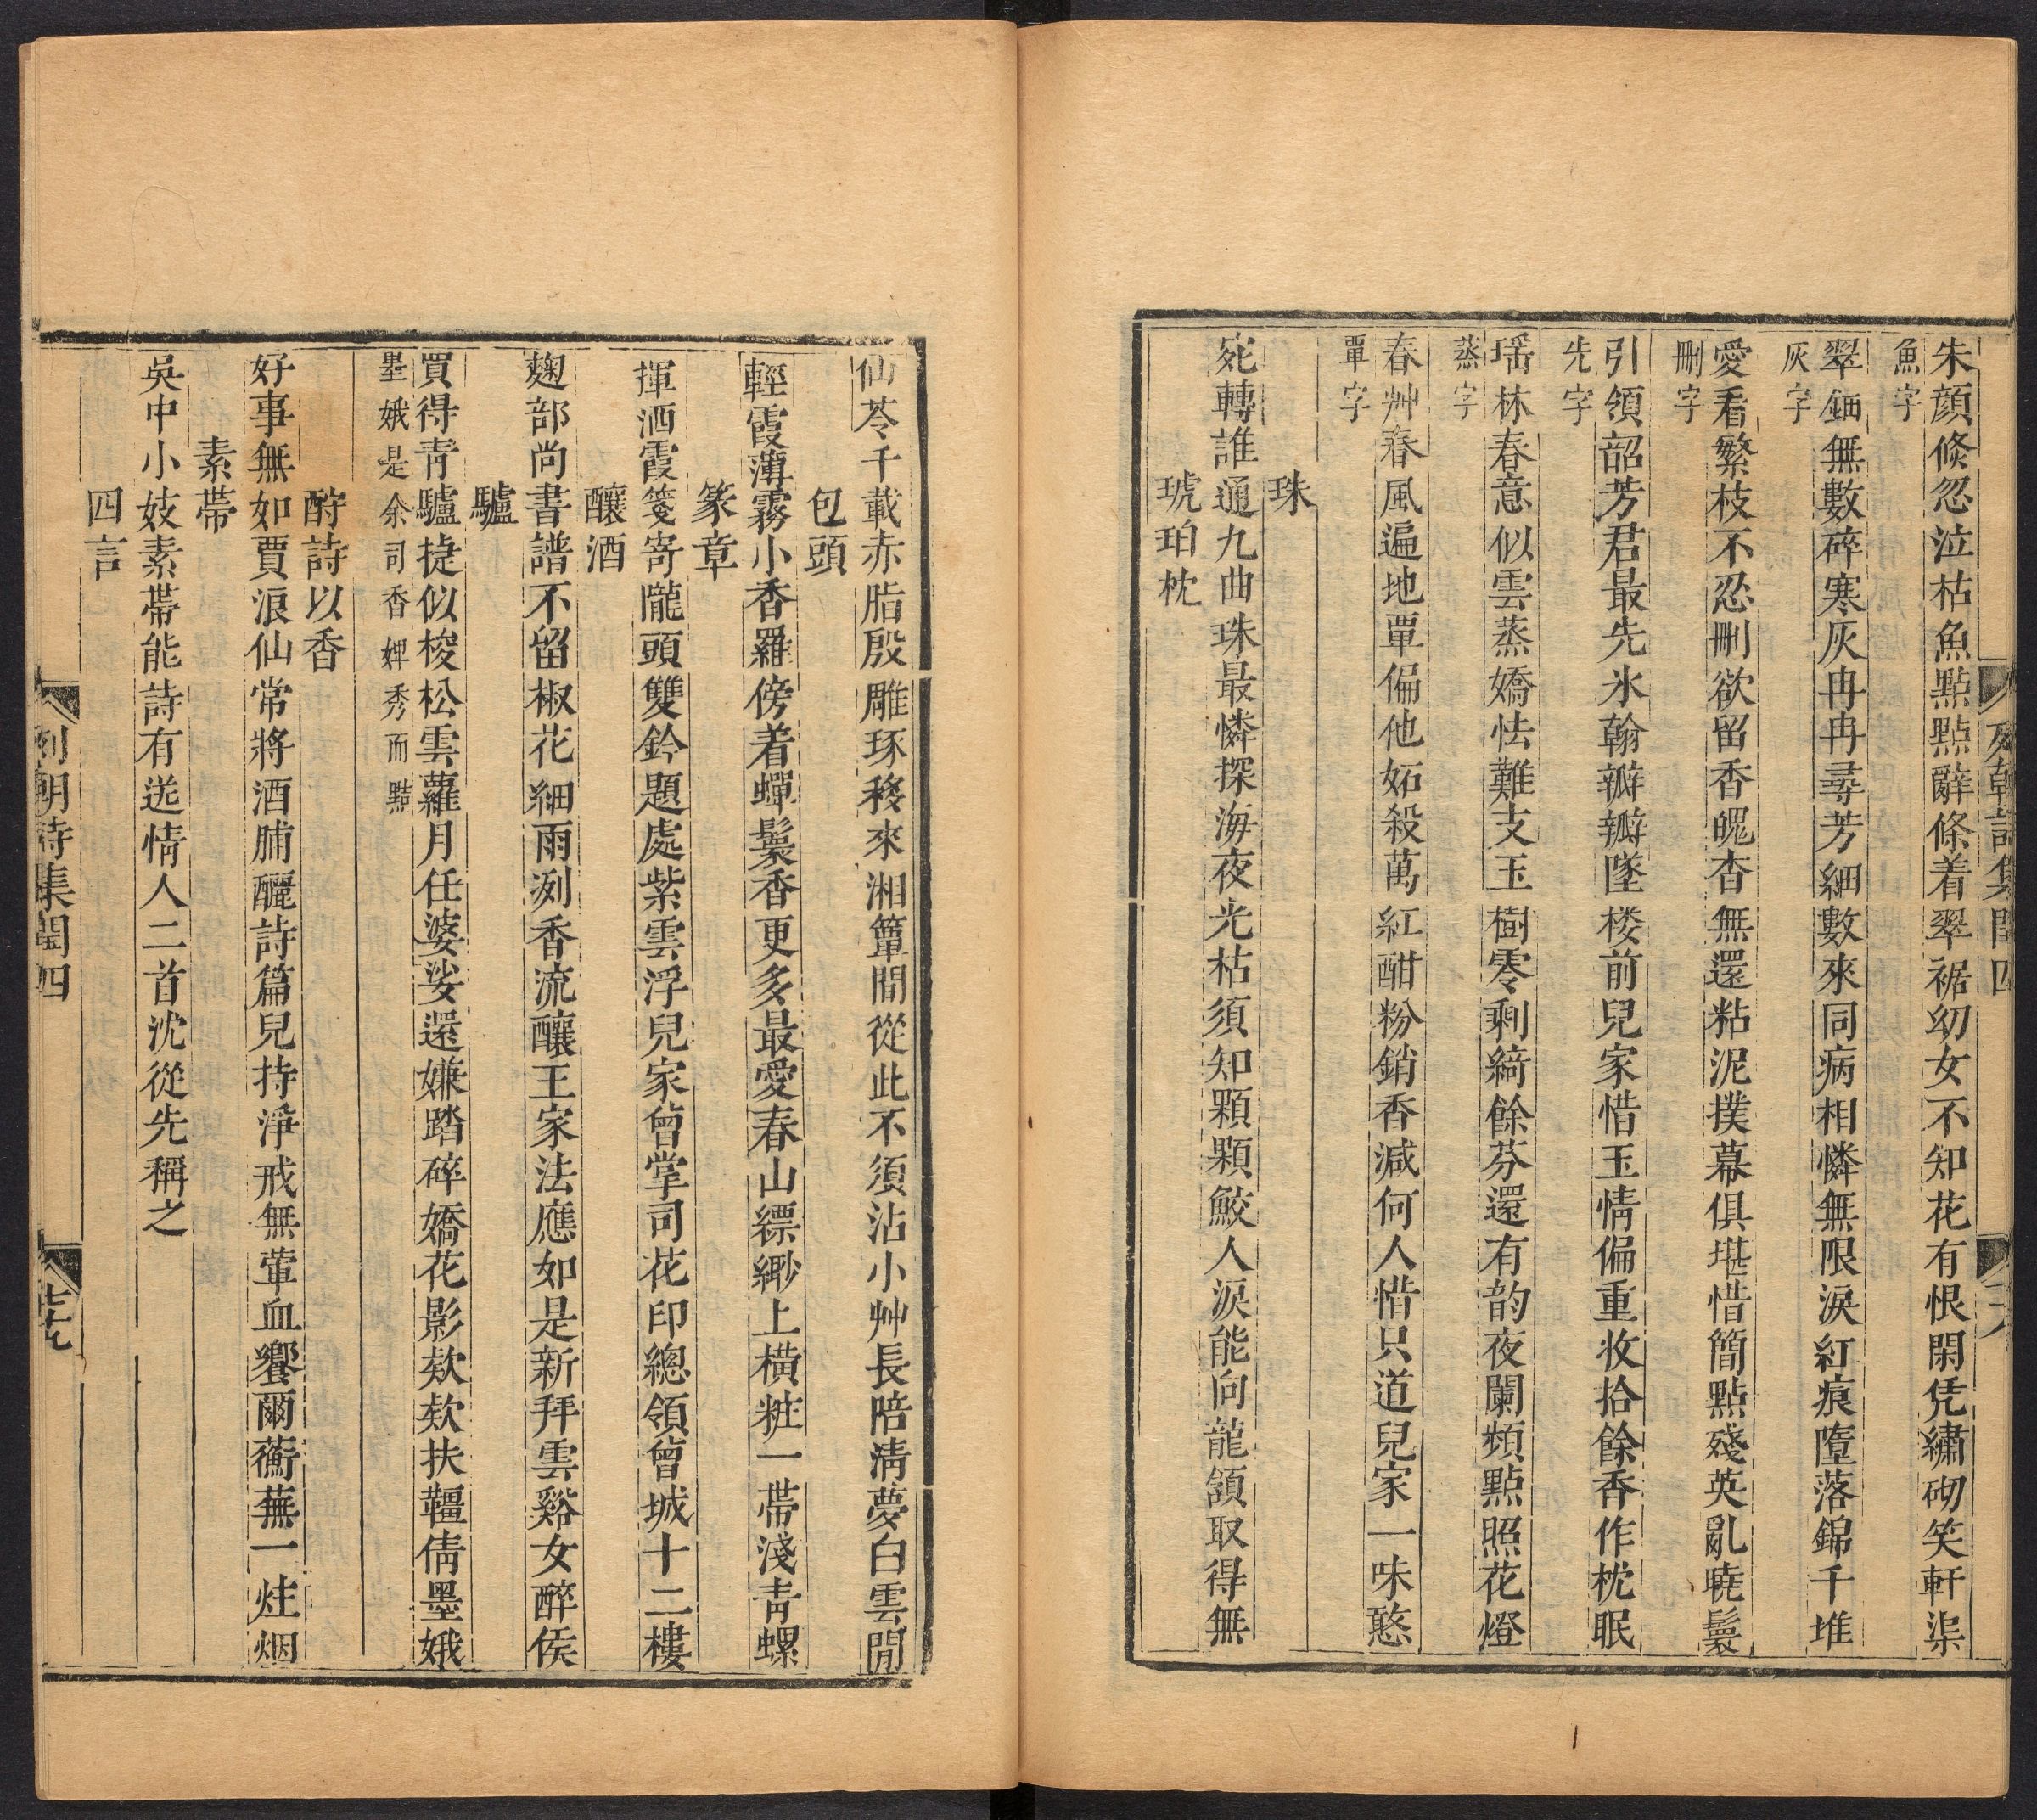 朱顔倐忽泣枯魚點點辭條着翠裾幼女不知花有恨閑凭繡砌笑軒渠
魚字
翠鈿無數碎寒灰冉冉尋芳細數來同病相憐無限淚紅痕墮落錦千堆
灰字
愛看繁枝不忍刪欲留香魄杳無還粘泥撲幕俱堪惜簡點殘英亂曉鬟
刪字
引領韶芳君最先氷翰瓣瓣墜楼前兒家惜玉情偏重收拾餘香作枕眠
先字
瑶林春意似雲蒸嬌怯難支玉樹零剩綺餘芬還有韵夜闌頻點照花燈
蒸字
春艸春風遍地覃偏他妬殺萬紅酣粉銷香減何人惜只道兒家一味憨
覃字
珠
宛轉誰通九曲珠最憐探海夜光枯須知顆顆鮫人淚能向龍頷取得無
琥珀枕
列朝詩集閏四
仙苓千載赤脂殷雕琢移來湘簟間從此不須沾小艸長陪清夢白雲閒
包頭
輕霞薄霧小香羅傍着蟬鬟香更多最愛春山縹緲上橫粧一帶淺青螺
篆章
揮洒霞箋寄隴頭雙鈐題處紫雲浮兒家曾掌司花印總領曾城十二樓
釀酒
麹部尚書譜不留椒花細雨冽香流釀王家法應如是新拜雲谿女醉侯
驢
買得青驢捷似梭松雲蘿月任婆娑還嫌踏碎嬌花影欸欸扶韁倩墨娥
墨娥是余司香婢秀而黠
酧詩以香
好事無如賈浪仙常將酒脯釃詩篇兒持淨戒無葷血饗爾蘅蕪一炷烟
素帶
吳中小妓素帶能詩有送情人二首沈從先稱之
四言
列朝詩集閏四